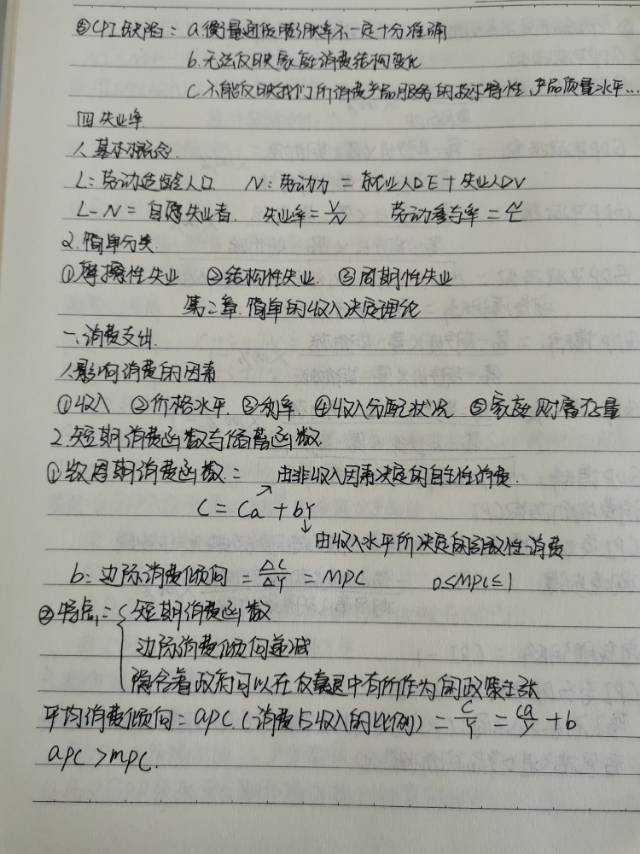 ③CPI缺陷: a.衡量通货膨胀率不一定十分准确
b.无法反映家庭消费结构变化
c.不能反映我们所消费产品服务的技术特性,产品质量水平...
四.失业率
1.基本概念
L:劳动适龄人口 N:劳动力=就业人口E+失业人口V
L-N=自愿失业者. 失业率=V/N 劳动参与率=N/L
2.简单分类
①摩擦性失业 ②结构性失业 ③周期性失业
第二章.简单的收入决定理论
一.消费支出
1.影响消费的因素
①收入 ②价格水平 ③利率 ④收入分配状况 ⑤家庭财富存量
2.短期消费函数与储蓄函数
①短周期消费函数: 由非收入因素决定的自主性消费
C=Ca+bY
由收入水平所决定的引致性消费
b:边际消费倾向=ΔC/ΔY=MPC 0≤MPC≤1
②特点:短期消费函数
边际消费倾向递减
隐含着政府可以在衰退中有所作为的政策主张
平均消费倾向=apc.(消费占收入的比例)=C/Y=Ca/Y+b
apc>mpc.